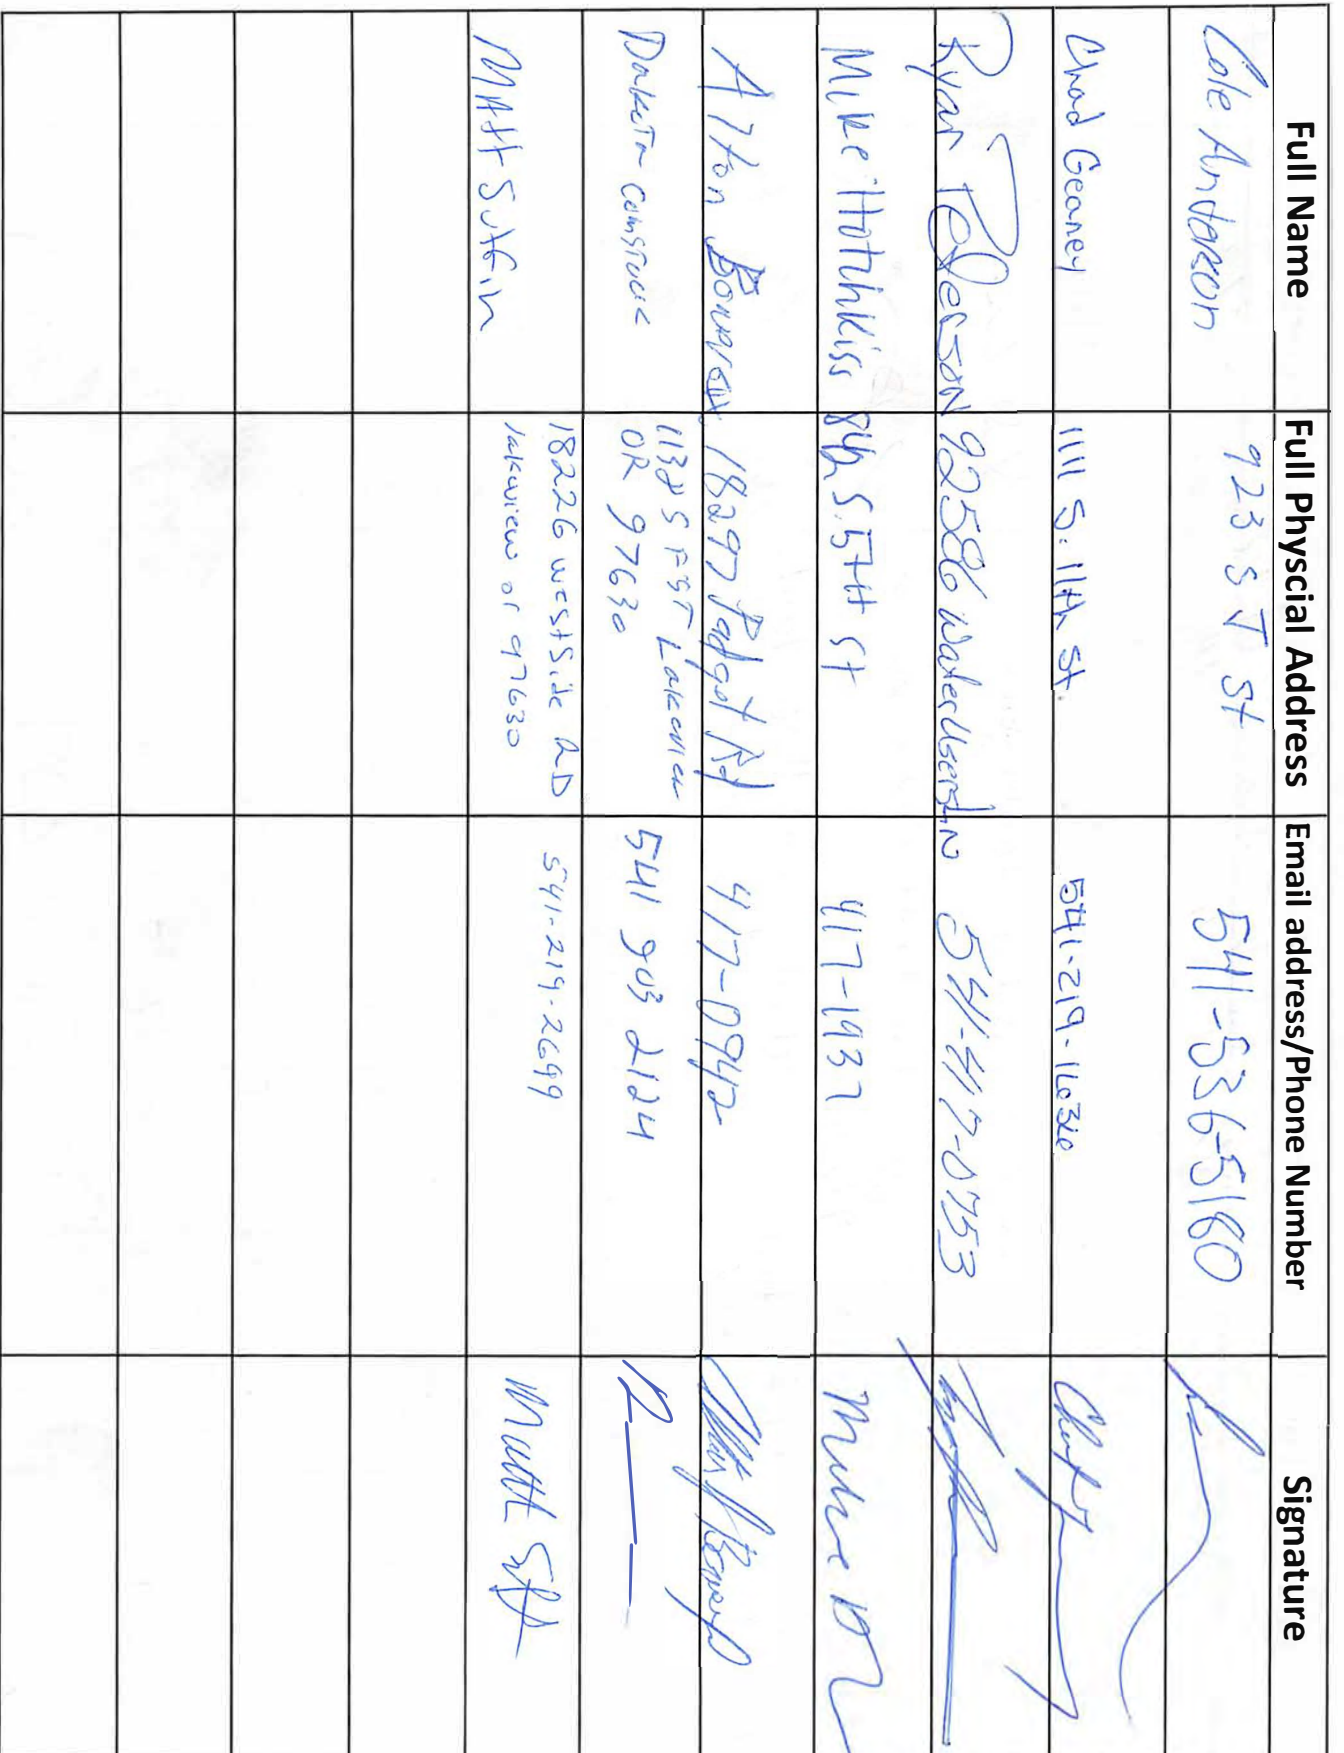 Full Name Full Physcial Address Email address/Phone Number Signature
Cole Anderson 923 S J St 541-536-5180
Chad Geaney 1111 S. 11th St. 541-219-1636
Ryan Pederson 92586 WaterUsers LN 541-417-0753
Mike Hotchkiss 842 S. 5TH St 417-1937 Mike
Alton 18297 Padget Rd 417-0942
1138 S F ST Lakeview
Dakota comstock OR 97630 541 903 2124
18226 westside RD
MAtt Sutfin lakeview or 97630 541-219-2699 Matt